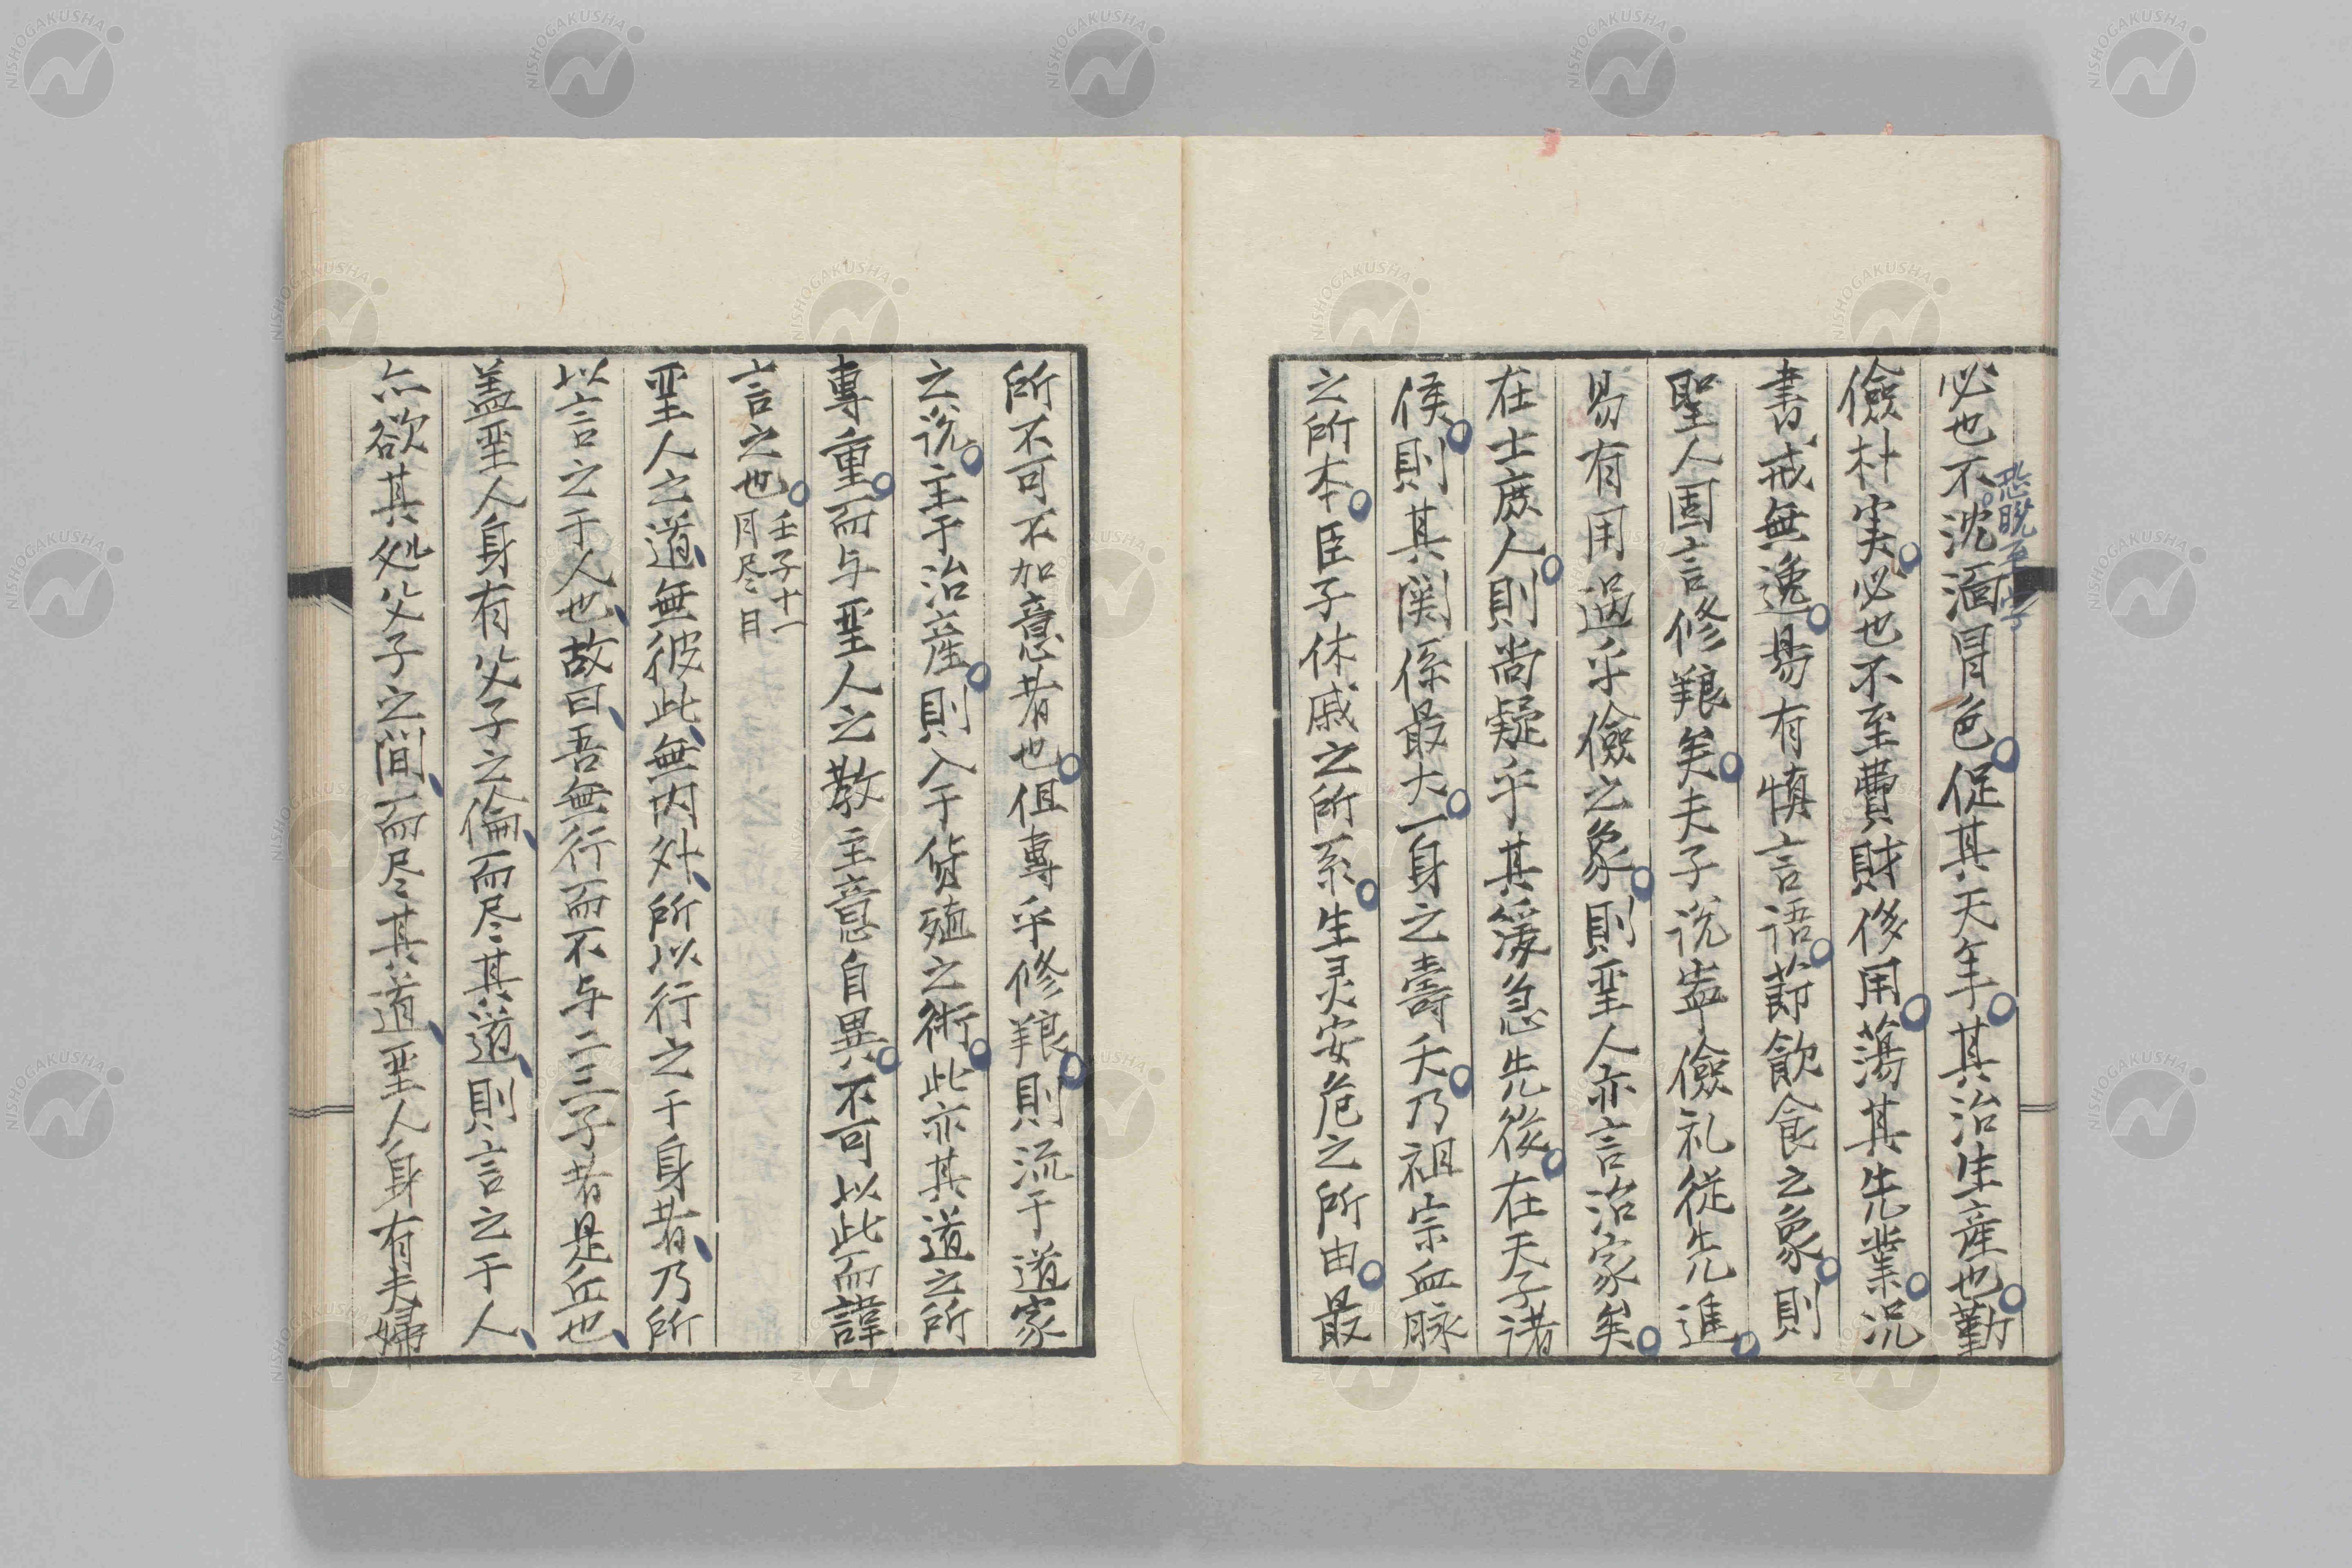 必也不沈湎冒色促其天年其治生産也勤
恐脱至字
儉朴実必也不至費財侈用蕩其先業況
書戒無逸易有慎言語節飲食之象則
聖人固言修養矣夫子説寧儉礼従先進
易有用過乎儉之象則聖人亦言治家矣
在士庶人則尚疑乎其緩急先後在天子諸
侯則其関係最大一身之壽夭乃祖宗血脉
之所本臣子休戚之所系生灵安危之所由最
所不可不加意者也但專乎修養則流于道家
之説主于治産則入于貨殖之術此亦其道之所
專重而与聖人之教主意自異不可以此而諱
言之也
壬子十一
月尽日
聖人之道無彼此無内外所以行之于身者乃所
以言之于人也故曰吾無行而不与二三子者是丘也
盖聖人身有父子之倫而尽其道則言之于人
亦欲其処父子之間而尽其道聖人身有夫婦
NISHOGAKUSHA